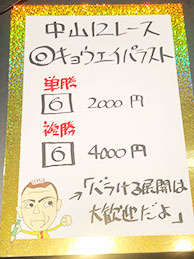 中山12レース
◎キョウエイパラスト
単勝
6 2000円
複勝
6 4000円
→「バラける展開は
大歓迎だよ」